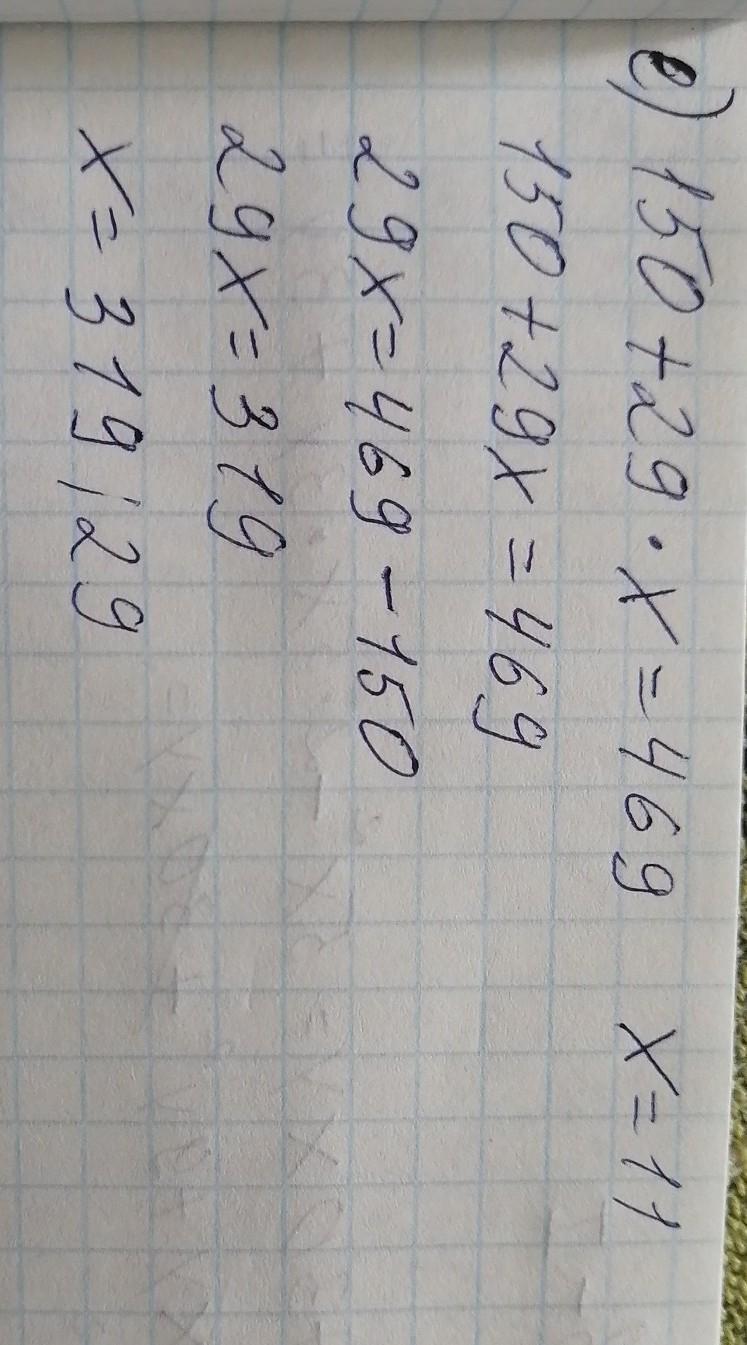 е) 150 + 29 · x = 469 x = 11
150 + 29x = 469
29x = 469 - 150
29x = 319
x = 319 / 29